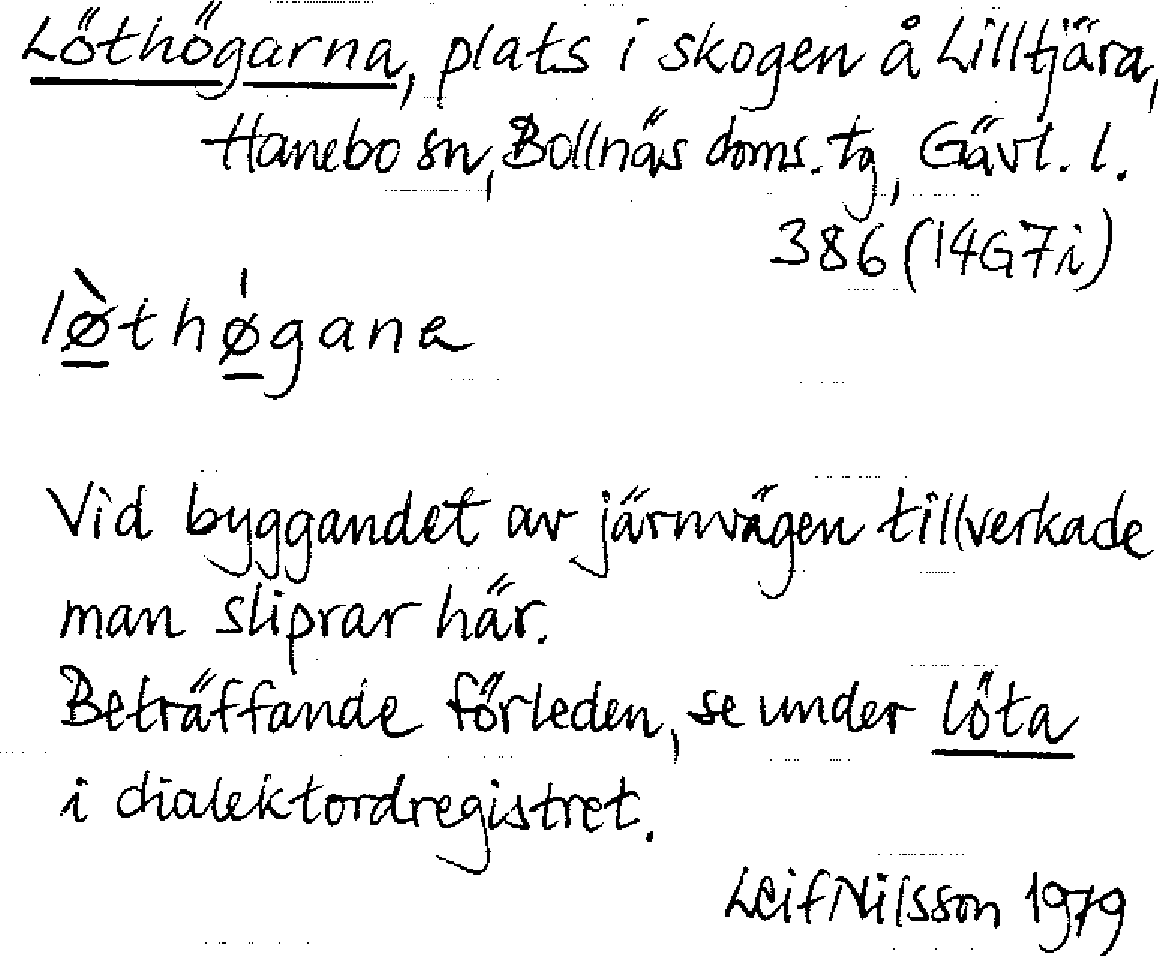 Löthögarna, plats i skogen å Lilltjära,
Hanebo sn, Bollnäs doms. tg, Gävl. l.
386 (14G7i)
lø̀thø̍gana
Vid byggandet av järnvägen tillverkade
man sliprar här.
Beträffande förleden, se under löta
i dialektordregistret.
Leif Nilsson 1979